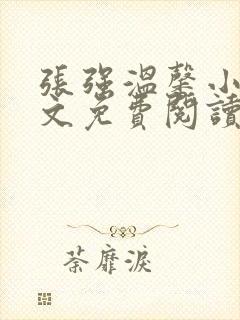 張强溫馨小
文免費閱讀
荼靡淚